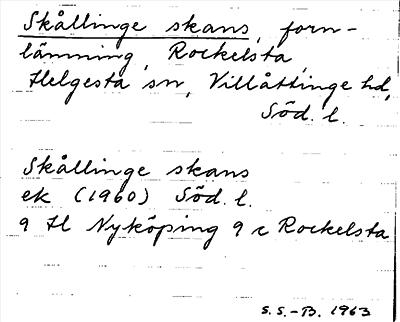 Skållinge skans, forn-
lämning, Rockelsta,
Helgesta sn, Villåttinge hd,
Söd. l.
Skållinge skans
ek (1960) Söd. l.
9 H Nyköping 9 c Rockelsta
S.S.-B. 1963